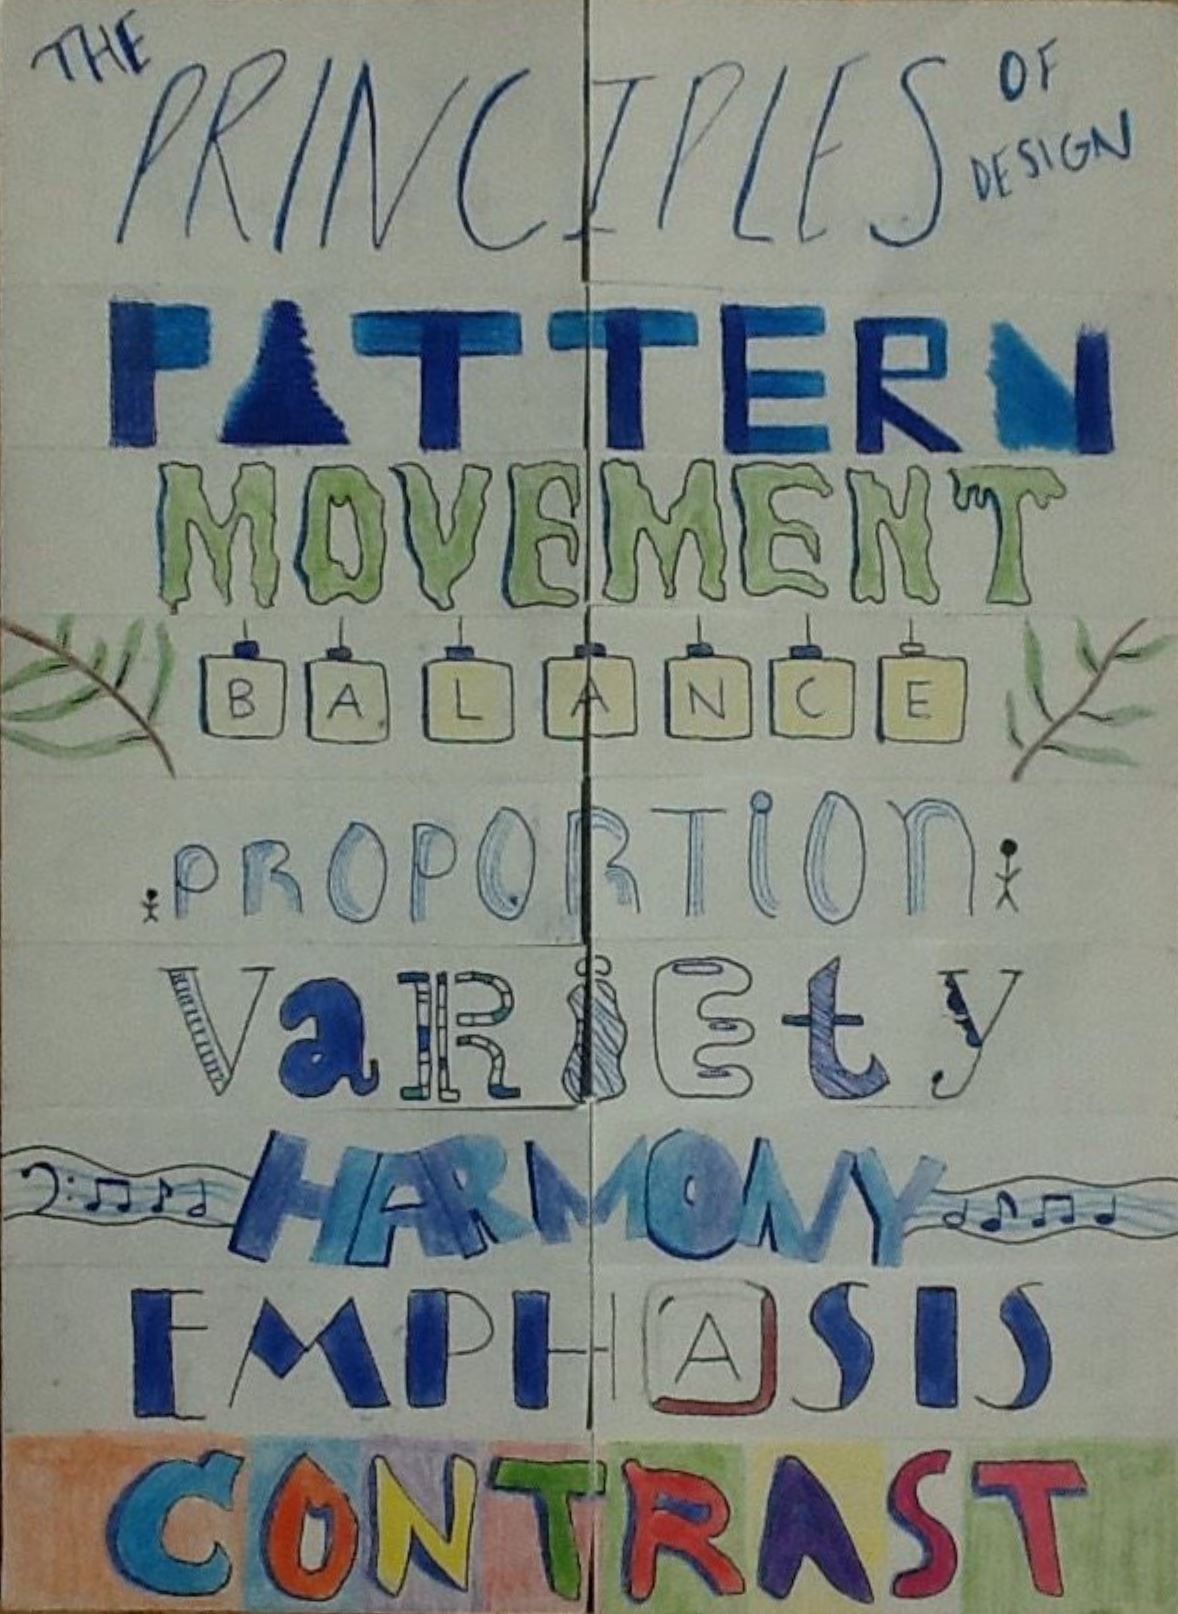 THE PRINCIPLES OF DESIGN
PATTERN
MOVEMENT
BALANCE
PROPORTION
VaRiEty
HARMONY
EMPHASIS
CONTRAST